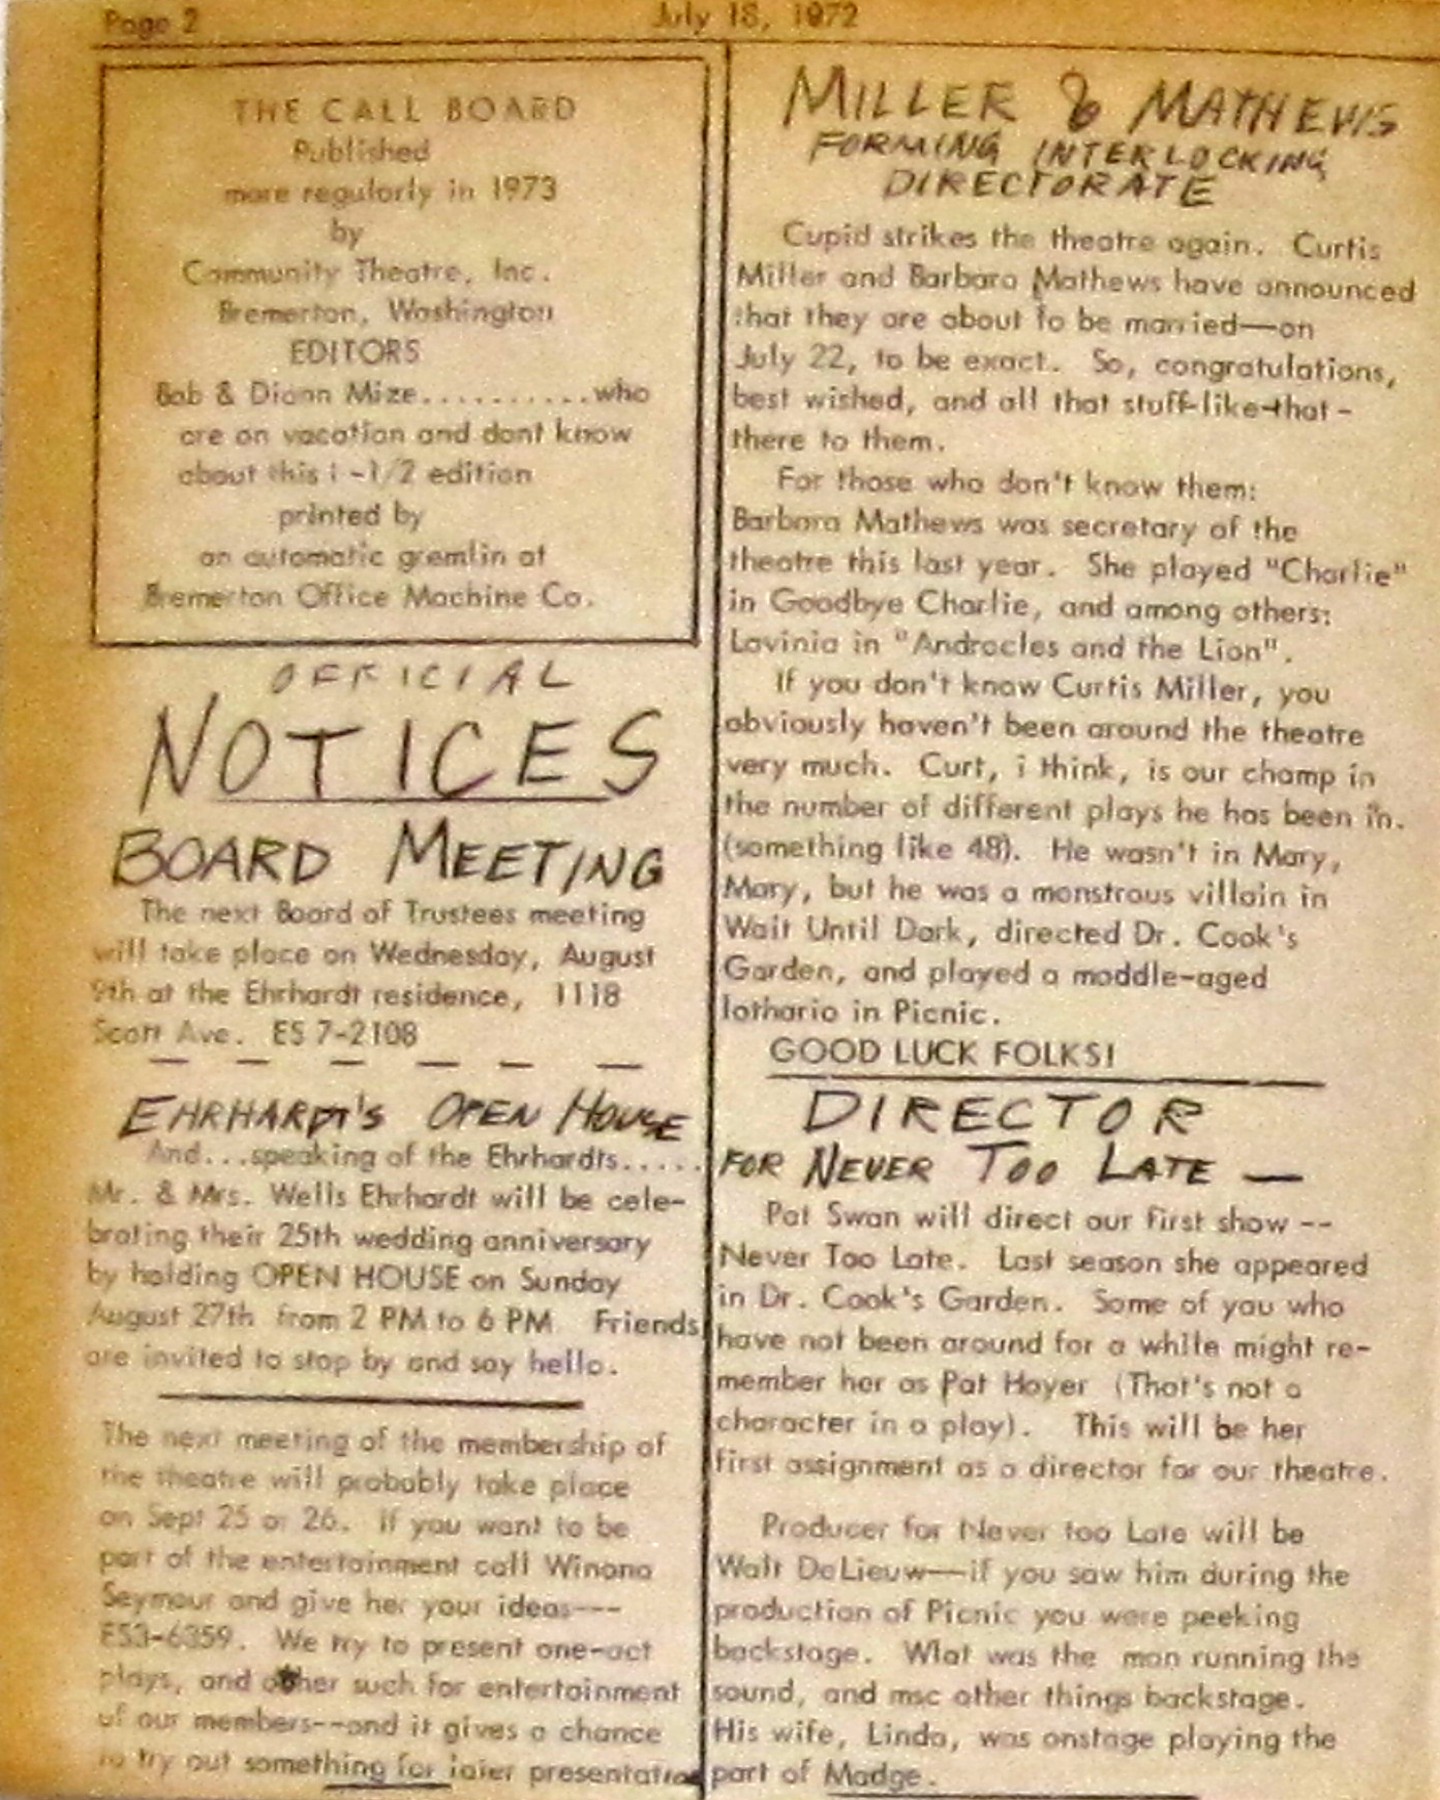 Page 2
July 18, 1972
THE CALL BOARD
Published
more regularly in 1973
by
Community Theatre, Inc.
Bremerton, Washington
EDITORS
Bob & Diann Mize...........who
are on vacation and dont know
about this 1 -1/2 edition
printed by
an automatic gremlin at
Bremerton Office Machine Co.
OFFICIAL
NOTICES
BOARD MEETING
The next Board of Trustees meeting
will take place on Wednesday, August
9th at the Ehrhardt residence, 1118
Scott Ave. ES 7-2108
EHRHARDT'S OPEN HOUSE
And...speaking of the Ehrhardts.....
Mr. & Mrs. Wells Ehrhardt will be cele-
brating their 25th wedding anniversary
by holding OPEN HOUSE on Sunday
August 27th from 2 PM to 6 PM Friends
are invited to stop by and say hello.
The next meeting of the membership of
the theatre will probably take place
on Sept 25 or 26. If you want to be
part of the entertainment call Winona
Seymour and give her your ideas---
ES3-6359. We try to present one-act
plays, and other such for entertainment
of our members--and it gives a chance
to try out something for later presentation
MILLER & MATHEWS
FORMING INTERLOCKING
DIRECTORATE
Cupid strikes the theatre again. Curtis
Miller and Barbara Mathews have announced
that they are about to be married—on
July 22, to be exact. So, congratulations,
best wished, and all that stuff-like-that-
there to them.
For those who don't know them:
Barbara Mathews was secretary of the
theatre this last year. She played "Charlie"
in Goodbye Charlie, and among others:
Lavinia in "Androcles and the Lion".
If you don't know Curtis Miller, you
obviously haven't been around the theatre
very much. Curt, i think, is our champ in
the number of different plays he has been in.
(something like 48). He wasn't in Mary,
Mary, but he was a monstrous villain in
Wait Until Dark, directed Dr. Cook's
Garden, and played a maddle-aged
lothario in Picnic.
GOOD LUCK FOLKS!
DIRECTOR
FOR NEVER TOO LATE —
Pat Swan will direct our first show --
Never Too Late. Last season she appeared
in Dr. Cook's Garden. Some of you who
have not been around for a while might re-
member her as Pat Hoyer (That's not a
character in a play). This will be her
first assignment as a director for our theatre.
Producer for Never too Late will be
Walt DeLieuw—if you saw him during the
production of Picnic you were peeking
backstage. Wlat was the man running the
sound, and msc other things backstage.
His wife, Linda, was onstage playing the
part of Madge.